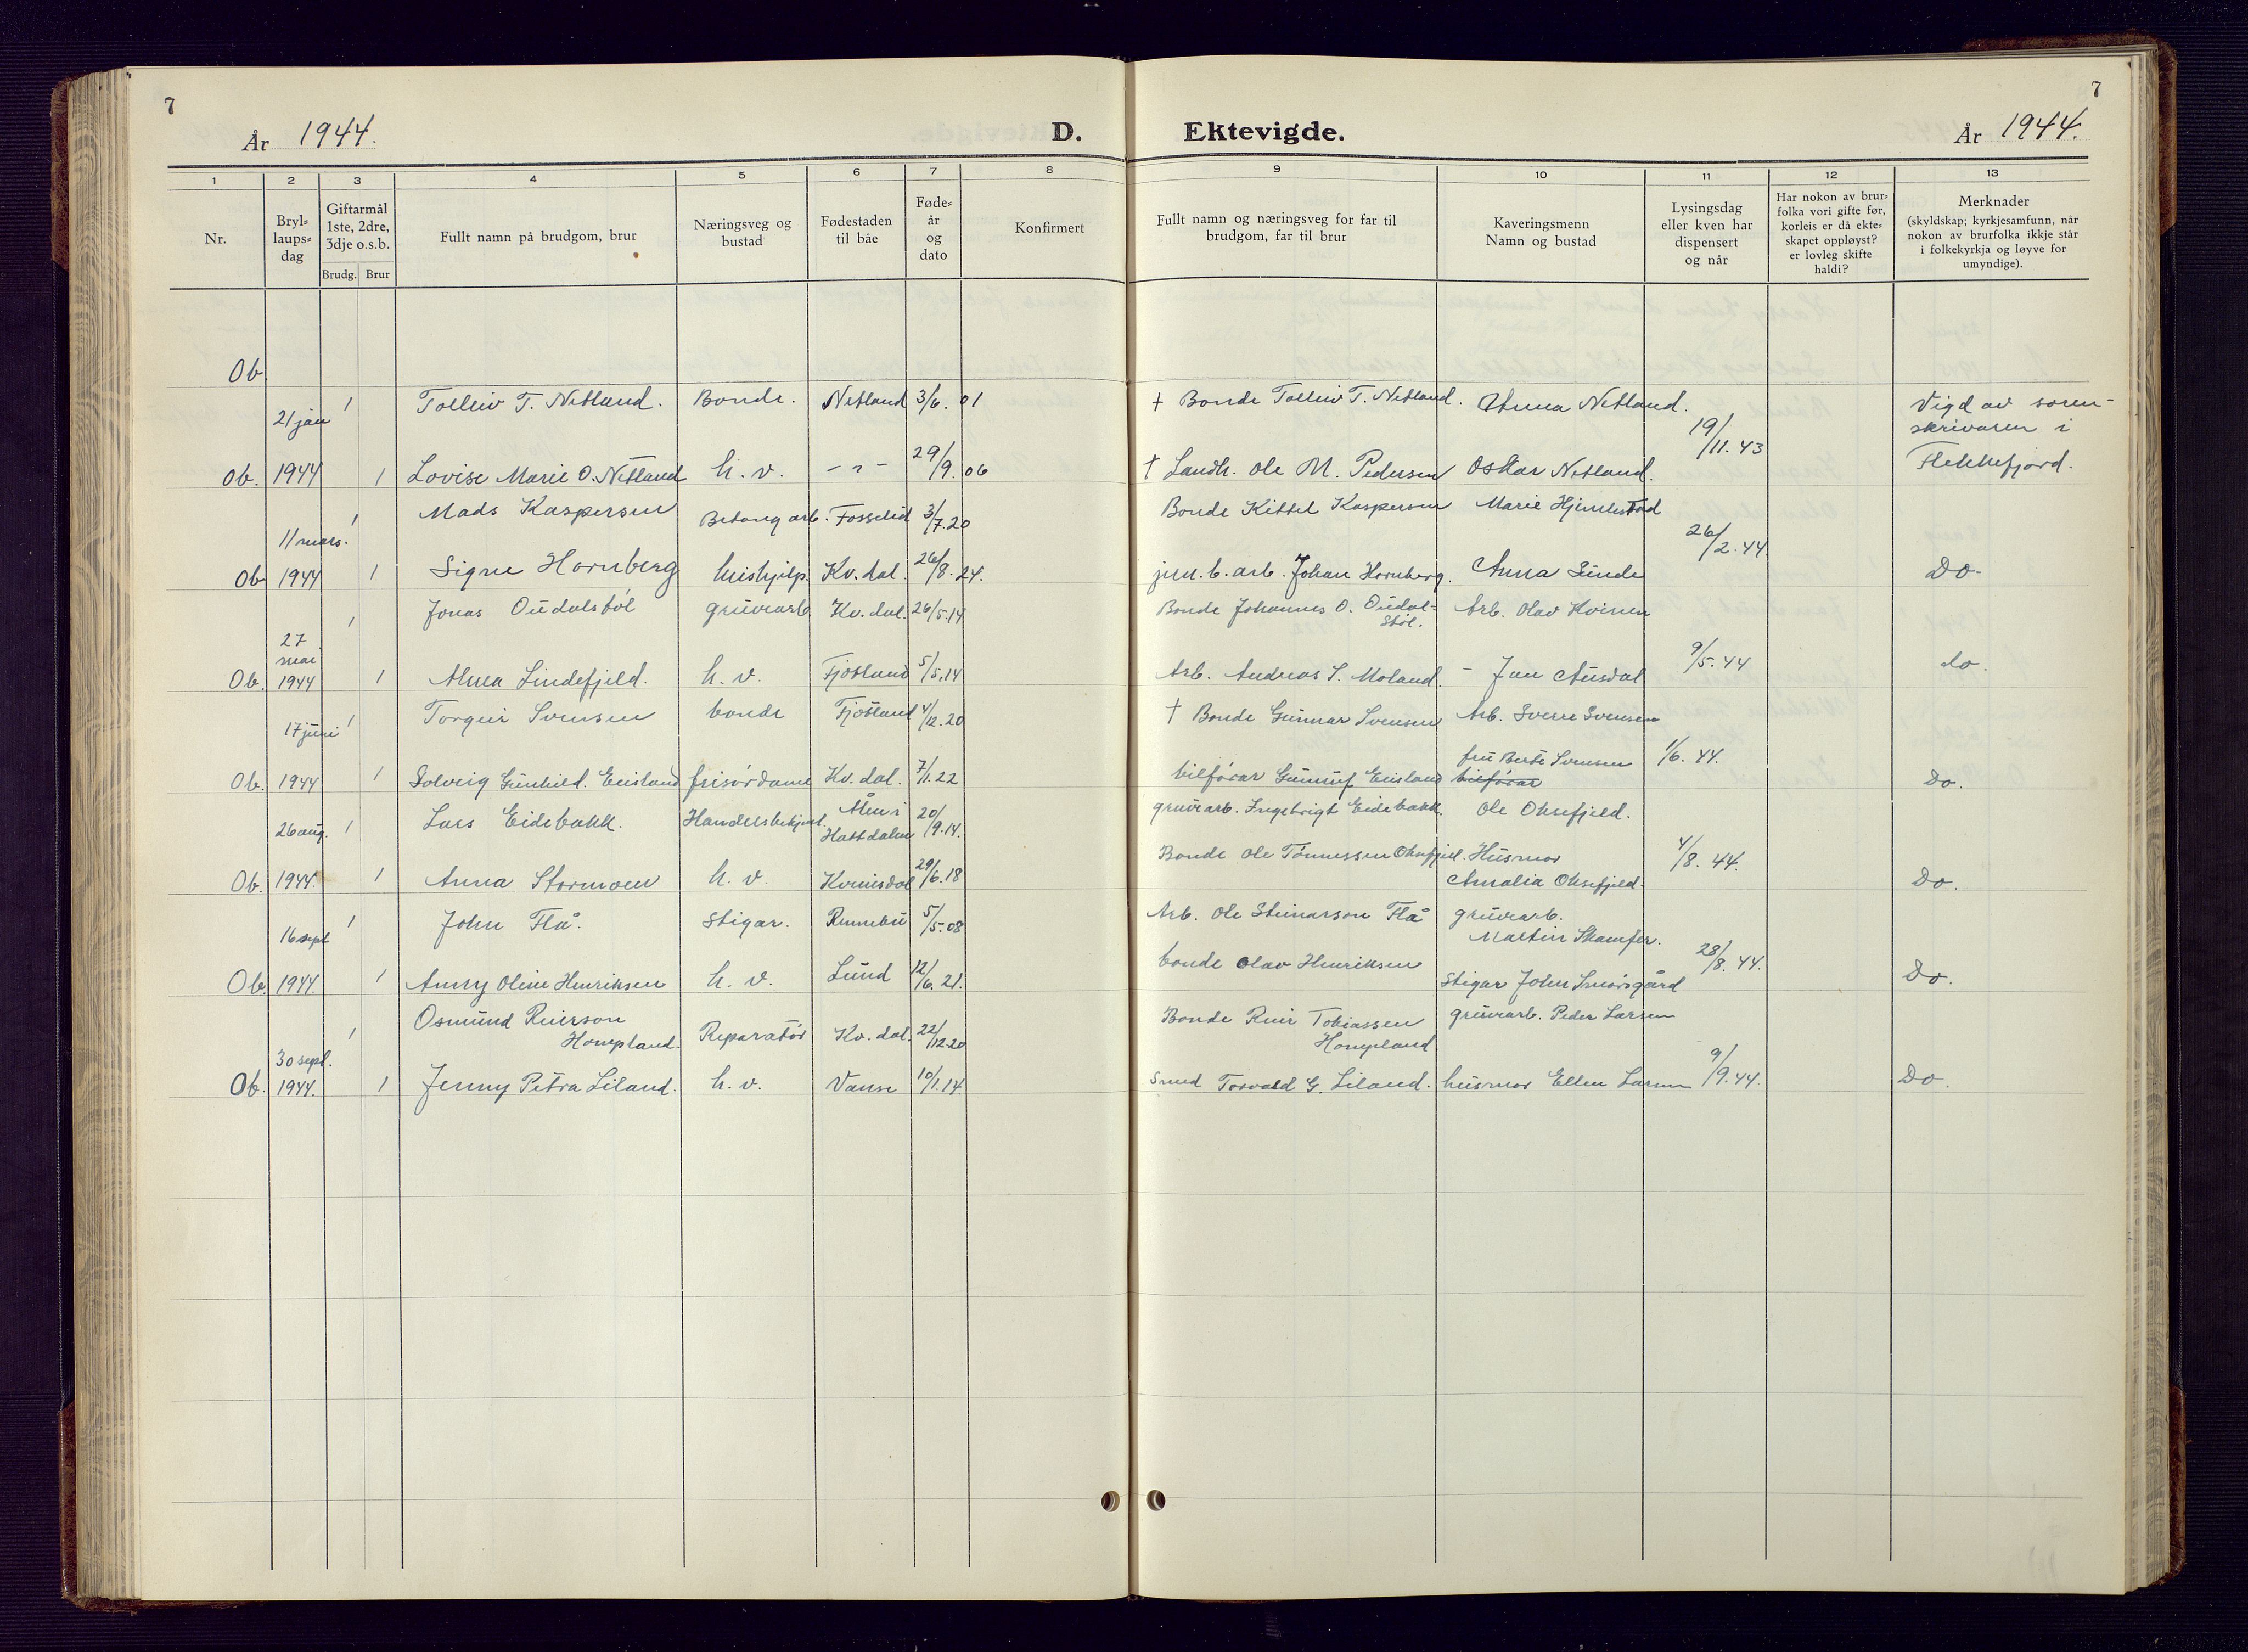 7
År 1944.
D. Ektevigde.
År 1944.
7
1 2 3 4 5 6 7 8 9 10 11 12 13
Nr.
Bryl-
laups-
dag
Giftarmål
1ste, 2dre,
3dje o.s.b.
Brudg. Brur
Fullt namn på brudgom, brur
Næringsveg og
bustad
Fødestaden
til båe
Føde-
år
og
dato
Konfirmert
Fullt namn og næringsveg for far til
brudgom, far til brur
Kaveringsmenn
Namn og bustad
Lysingsdag
eller kven har
dispensert
og når
Har nokon av brur-
folka vori gifte før,
korleis er då ekte-
skapet oppløyst?
er lovleg skifte
haldi?
Merknader
(skyldskap; kyrkjesamfunn, når
nokon av brurfolka ikkje står
i folkekyrkja og løyve for
umyndige).
Ob
21 jan 1 Tolleiv T. Netland. Bonde. Netland 3/6. 01 † Bonde Tolleiv T. Netland. Anna Netland. 19/11. 43 Vigd av soren-
skrivaren i
Ob. 1944 1 Lovise Marie O. Netland h. v. – " – 29/9. 06 † Landh. Ole M. Pedersen Oskar Netland. Flekkefjord.
11 mars. 1 Mads Kaspersen Betongarb. Fosselid 3/7. 20 Bonde Kittel Kaspersen Marie Hjemlestad 26/2. 44.
Ob 1944 1 Signe Hornberg hushjelp. Kv. dal. 26/8. 24. jern. b. arb. Johan Hornberg. Anna Sunde Do-
27
mai 1 Jonas Oudalstøl gruvearb Kv. dal. 26/5. 14 Bonde Johannes O. Oudal-
støl. Arb. Olav Kvinen 9/5. 44
Ob. 1944 1 Alma Lindefjeld. h. v. Fjotland 5/5. 14 Arb. Andreas S. Moland. – Jan Ausdal do.
17 juni 1 Torgeir Svensen bonde Fjotland 4/12. 20 † Bonde Gunnar Svensen Arb. Sverre Svensen
fru Berte Svensen 1/6. 44.
Ob. 1944 1 Solveig Gunhild. Eeisland frisørdame Kv. dal. 7/1. 22 bilførar Gunnuf Eeisland bilførar Do.
26 aug. 1 Lars Eidebakk. Handelsbetjent. Ålen i
Haltdalen 20/9. 14. gruvearb. Ingebrigt Eidebakk. Ole Oksefjeld.
Ob. 1944. 1 Anna Stormoen h. v. Kvinesdal 29/6. 18 Bonde Ole Tønnessen Oksefjeld. Husmor
Amalia Oksefjeld. 4/8. 44. Do.
16 sept 1 John Flå. Stigar. Rennebu 5/5. 08 Arb. Ole Steinarson Flå gruvearb.
Martin Skamfer. 28/8. 44.
Ob. 1944. 1 Anny Oline Henriksen h. v. Lund 12/6. 21. bonde Olav Henriksen Stigar John Snorsgård Do.
30 sept. 1 Osmund Reierson
Hompland. Reparatør Kv. dal. 22/12 20 Bonde Reir Tobiassen
Hompland gruvearb. Peder Larsen 9/9. 44.
Ob. 1944. 1 Jenny Petra Liland. h. v. Vanse 10/1. 14. Smed Torvald G. Liland. husmor Ellen Larsen Do.